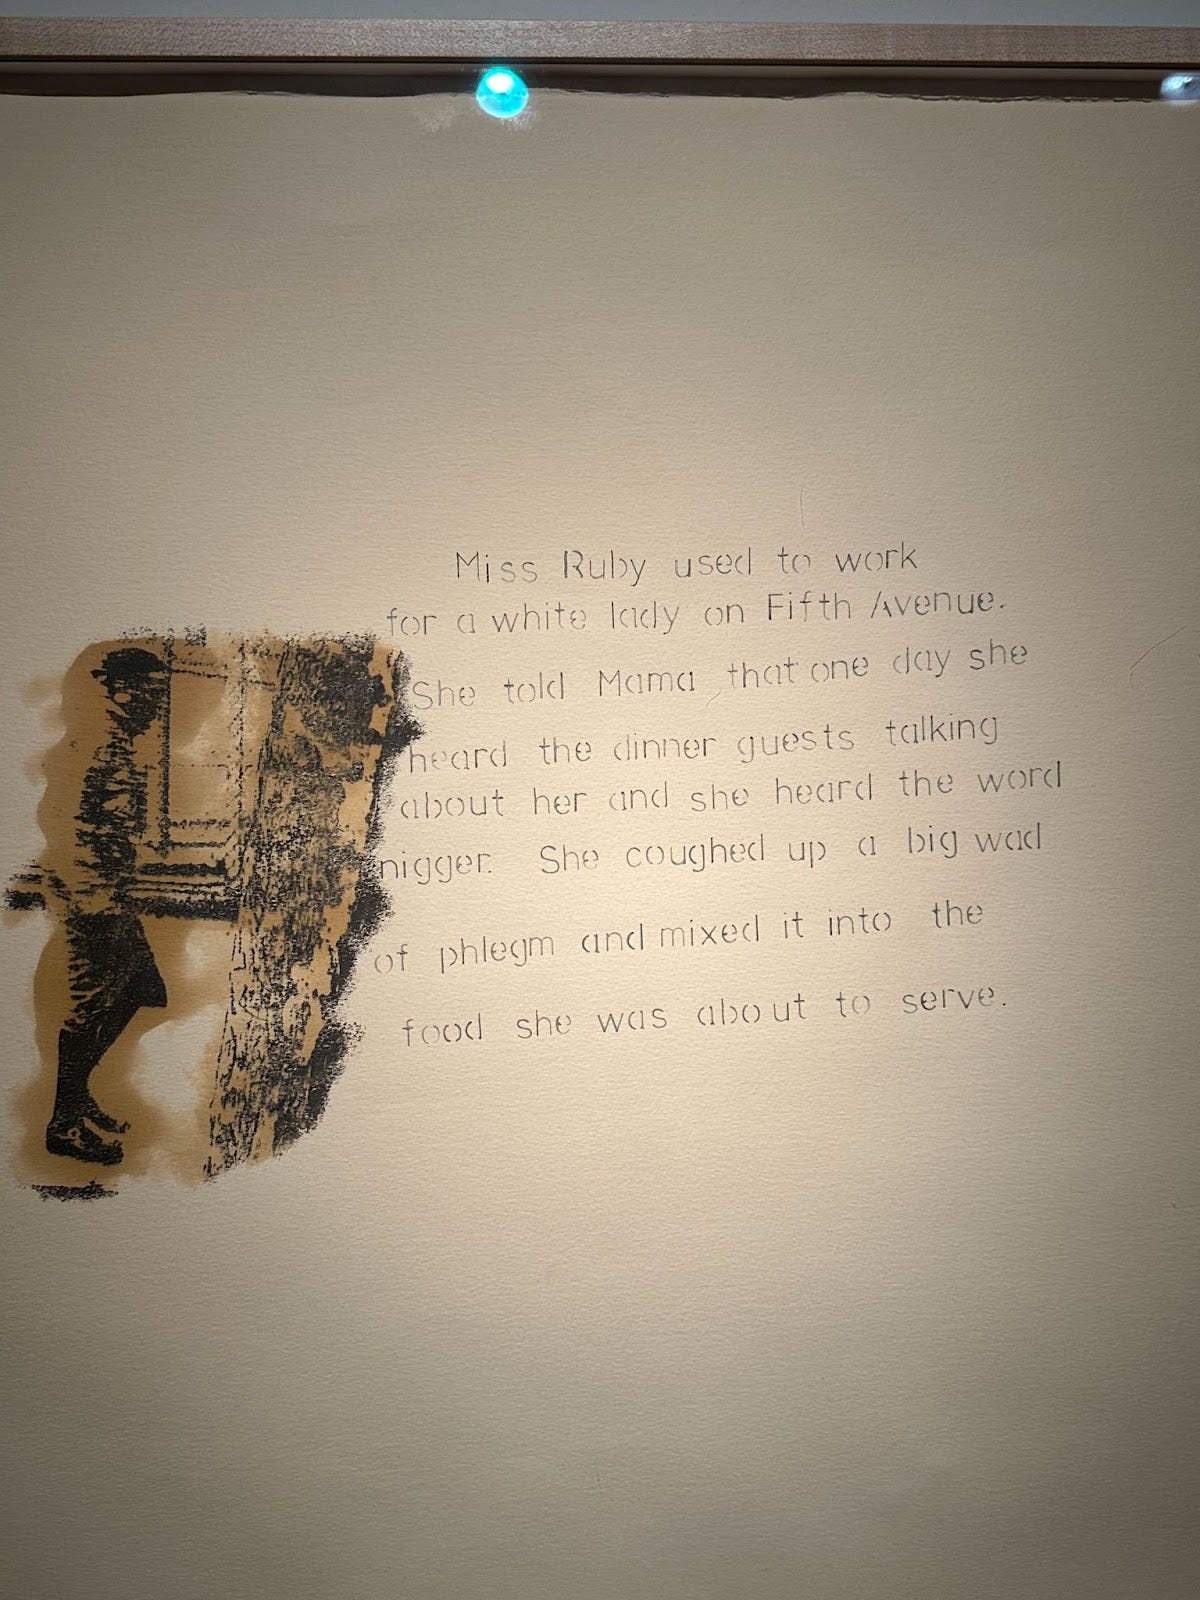 Miss Ruby used to work
for a white lady on Fifth Avenue.
She told Mama that one day she
heard the dinner guests talking
about her and she heard the word
nigger. She coughed up a big wad
of phlegm and mixed it into the
food she was about to serve.